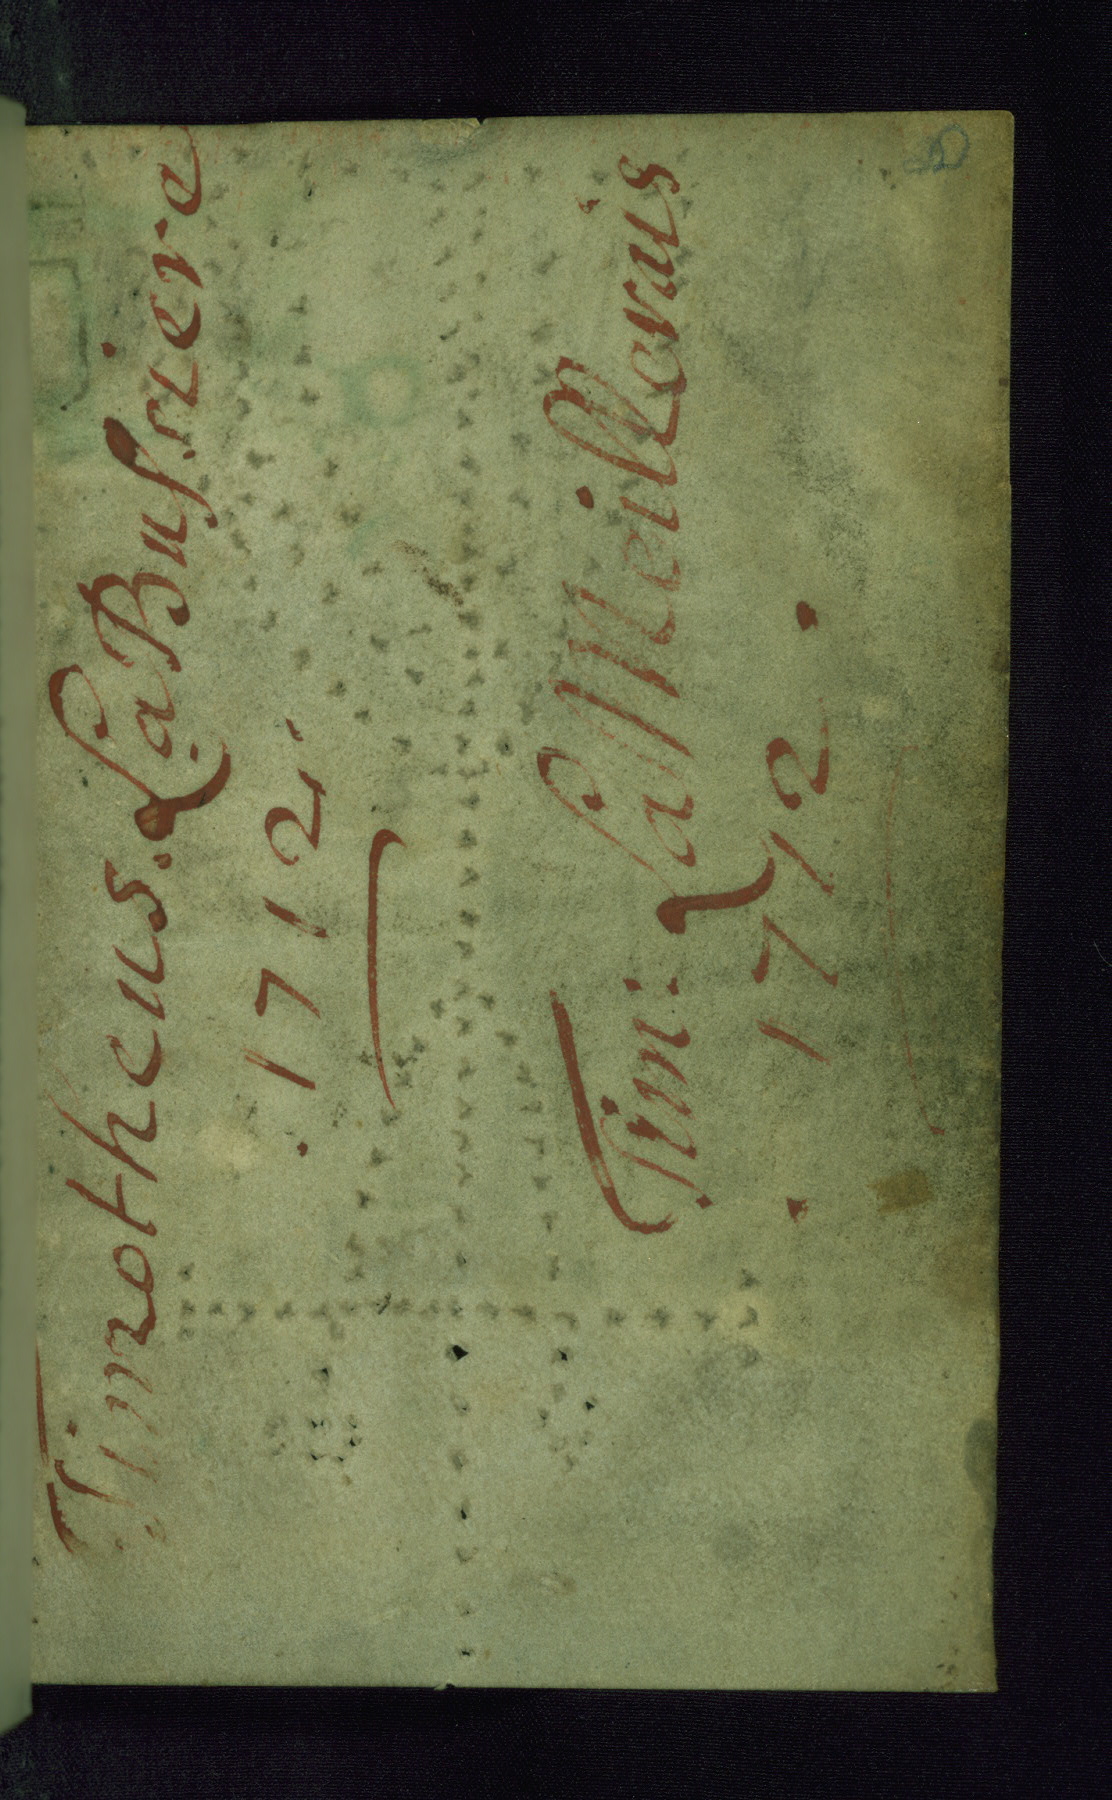 Timotheus. La Bussiere
. 1712.
Tim: La Meilleraiis
. 1772 .